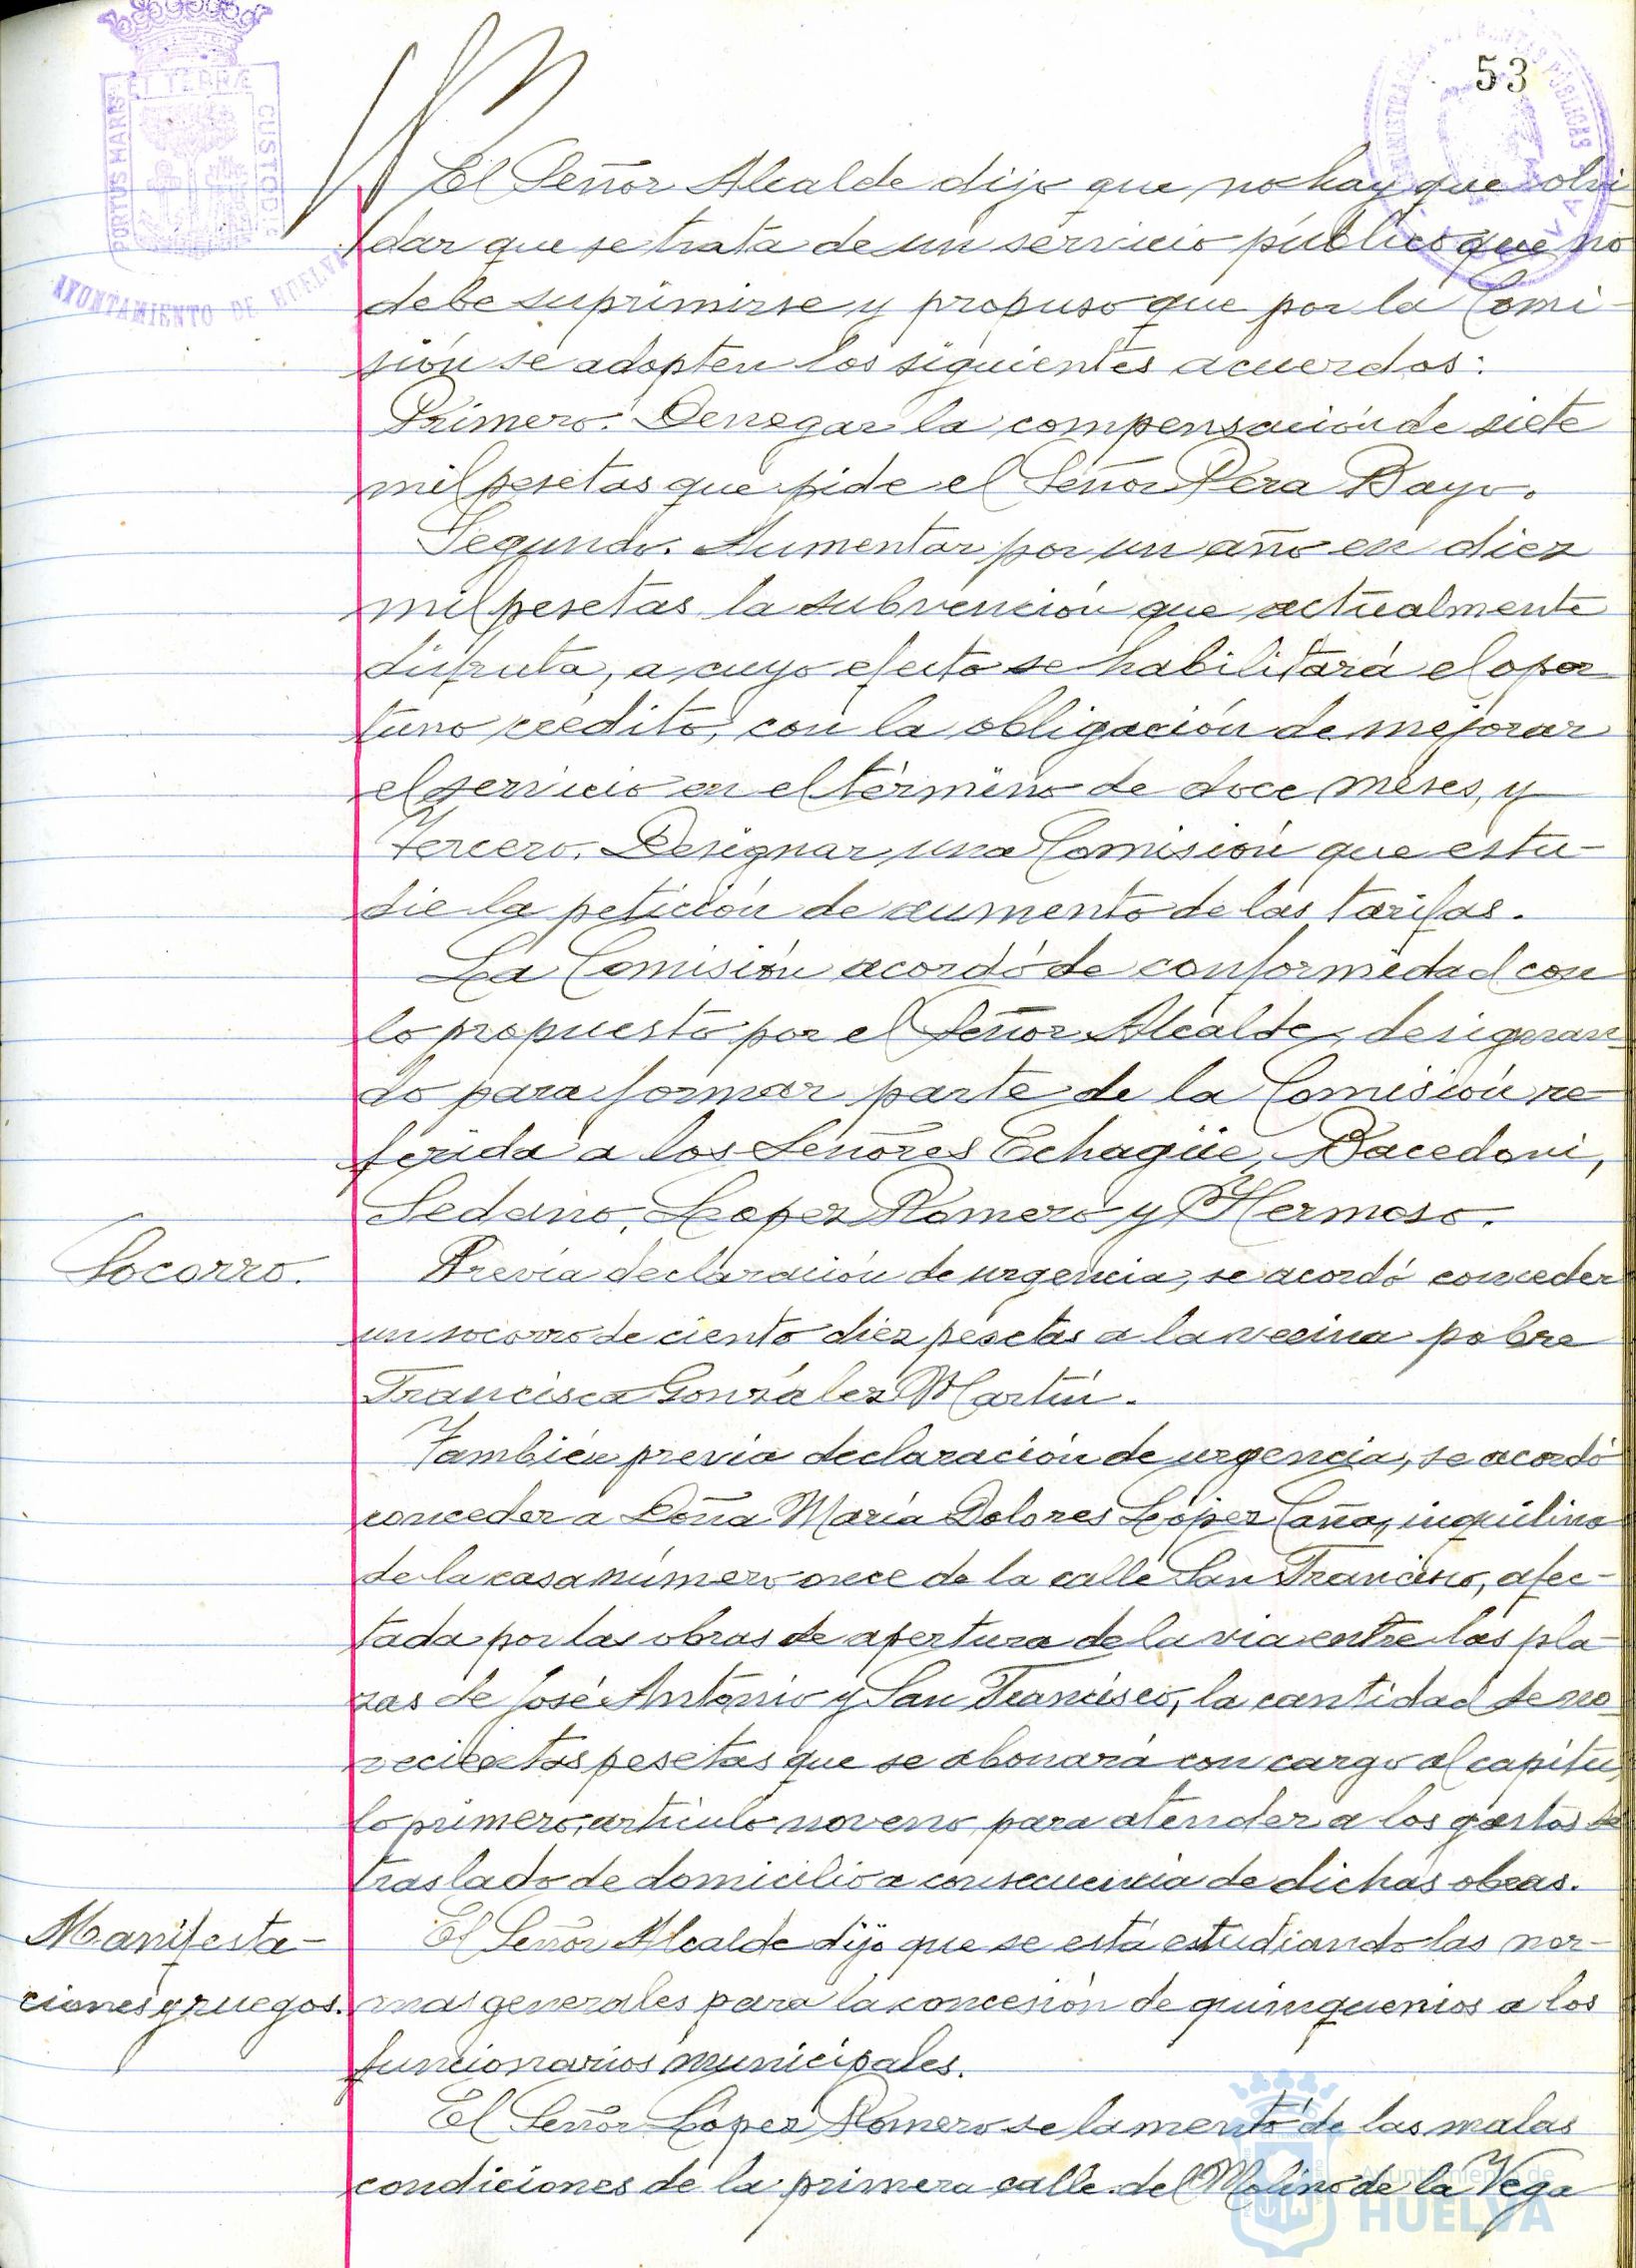 53
PORTUS MARIS
ET TERRÆ
CUSTODIA
AYUNTAMIENTO DE HUELVA
El Señor Alcalde dijo que no hay que olvi-
dar que se trata de un servicio público que no
debe suprimirse y propuso que por la Comi-
sión se adopten los siguientes acuerdos:
Primero. Denegar la compensación de siete
mil pesetas que pide el Señor Pera Bayo.
Segundo. Aumentar por un año en diez
mil pesetas la subvención que actualmente
disfruta, a cuyo efecto se habilitará el opor-
tuno crédito, con la obligación de mejorar
el servicio en el término de doce meses, y
Tercero. Designar una Comisión que estu-
die la petición de aumento de las tarifas.
La Comisión acordó de conformidad con
lo propuesto por el Señor Alcalde, designan-
do para formar parte de la Comisión re-
ferida a los Señores Echagüe, Bacedoni,
Sedano, Lopez Romero y Hermoso.
Socorro.
Previa declaración de urgencia, se acordó conceder
un socorro de ciento diez pesetas a la vecina pobre
Francisca González Martín.
También previa declaración de urgencia, se acordó
conceder a Doña María Dolores López Caña, inquilina
de la casa número once de la calle San Francisco, afec-
tada por las obras de apertura de la via entre las pla-
zas de José Antonio y San Francisco, la cantidad de no-
vecientas pesetas que se abonará con cargo al capítu-
lo primero, artículo noveno, para atender a los gastos de
traslado de domicilio a consecuencia de dichas obras.
Manifesta-
ciones y ruegos.
El Señor Alcalde dijo que se está estudiando las nor-
mas generales para la concesión de quinquenios a los
funcionarios municipales.
El Señor López Romero se lamentó de las malas
condiciones de la primera calle del Molino de la Vega
Ayuntamiento de
HUELVA